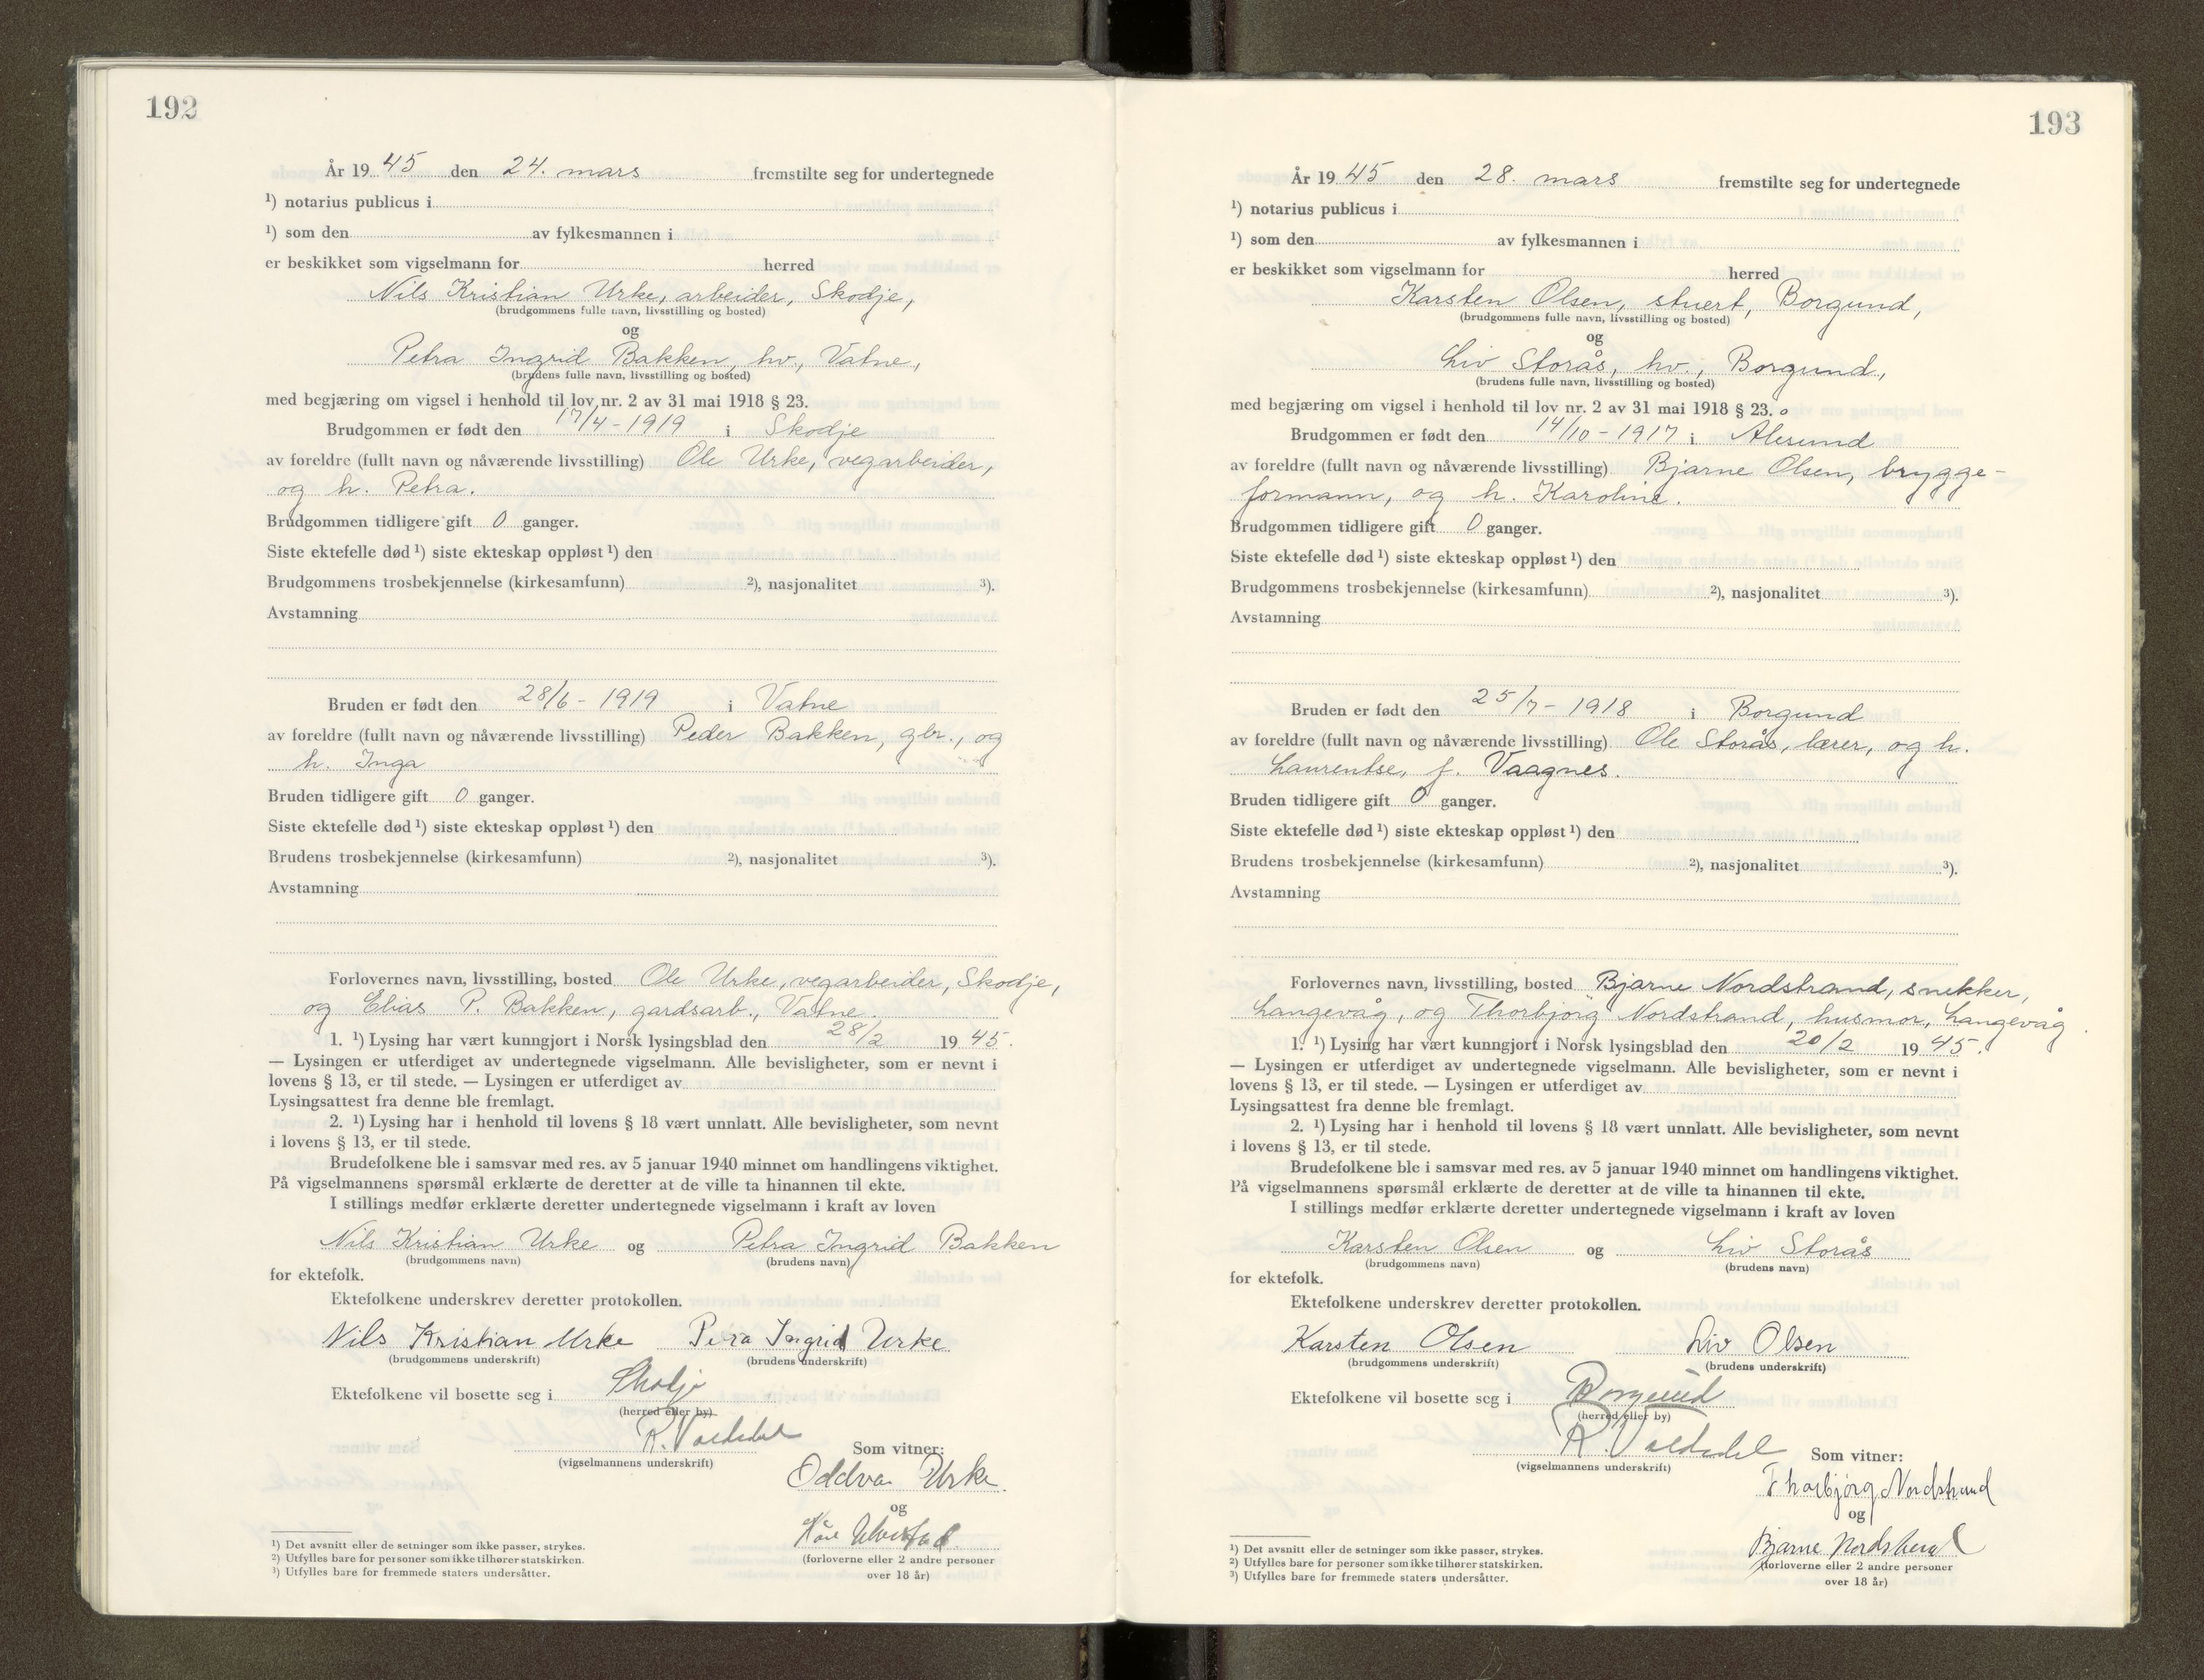 192
År 1945 den 24. mars fremstilte seg for undertegnede
¹) notarius publicus i
¹) som den av fylkesmannen i
er beskikket som vigselmann for herred
Nils Kristian Urke, arbeider, Skodje,
(brudgommens fulle navn, livsstilling og bosted)
og
Petra Ingrid Bakken, hv., Vatne,
(brudens fulle navn, livsstilling og bosted)
med begjæring om vigsel i henhold til lov nr. 2 av 31 mai 1918 § 23.
Brudgommen er født den 17/4 - 1919 i Skodje
av foreldre (fullt navn og nåværende livsstilling) Ole Urke, vegarbeider,
og h. Petra.
Brudgommen tidligere gift 0 ganger.
Siste ektefelle død ¹) siste ekteskap oppløst ¹) den
Brudgommens trosbekjennelse (kirkesamfunn) ²), nasjonalitet ³).
Avstamning
Bruden er født den 28/6 - 1919 i Vatne
av foreldre (fullt navn og nåværende livsstilling) Peder Bakken, gbr., og
h. Inga
Bruden tidligere gift 0 ganger.
Siste ektefelle død ¹) siste ekteskap oppløst ¹) den
Brudens trosbekjennelse (kirkesamfunn) ²), nasjonalitet ³).
Avstamning
Forlovernes navn, livsstilling, bosted Ole Urke, vegarbeider, Skodje,
og Elias P. Bakken, gardsarb., Vatne.
1. ¹) Lysing har vært kunngjort i Norsk lysingsblad den 28/2 1945.
— Lysingen er utferdiget av undertegnede vigselmann. Alle bevisligheter, som er nevnt i
lovens § 13, er til stede. — Lysingen er utferdiget av
Lysingsattest fra denne ble fremlagt.
2. ¹) Lysing har i henhold til lovens § 18 vært unnlatt. Alle bevisligheter, som nevnt
i lovens § 13, er til stede.
Brudefolkene ble i samsvar med res. av 5 januar 1940 minnet om handlingens viktighet.
På vigselmannens spørsmål erklærte de deretter at de ville ta hinannen til ekte.
I stillings medfør erklærte deretter undertegnede vigselmann i kraft av loven
Nils Kristian Urke og Petra Ingrid Bakken
(brudgommens navn) (brudens navn)
for ektefolk.
Ektefolkene underskrev deretter protokollen.
Nils Kristian Urke Petra Ingrid Urke
(brudgommens underskrift) (brudens underskrift)
Ektefolkene vil bosette seg i Skodje
(herred eller by)
R. Valdedal
(vigselmannens underskrift)
Som vitner:
Oddvar Urke
og
Kåre
(forloverne eller 2 andre personer
over 18 år)
¹) Det avsnitt eller de setninger som ikke passer, strykes.
²) Utfylles bare for personer som ikke tilhører statskirken.
³) Utfylles bare for fremmede staters undersåtter.
193
År 1945 den 28. mars fremstilte seg for undertegnede
¹) notarius publicus i
¹) som den av fylkesmannen i
er beskikket som vigselmann for herred
Karsten Olsen, stuert, Borgund,
(brudgommens fulle navn, livsstilling og bosted)
og
Liv Storås, hv., Borgund,
(brudens fulle navn, livsstilling og bosted)
med begjæring om vigsel i henhold til lov nr. 2 av 31 mai 1918 § 23.
Brudgommen er født den 14/10 - 1917 i Ålesund
av foreldre (fullt navn og nåværende livsstilling) Bjarne Olsen, brygge-
formann, og h. Karoline.
Brudgommen tidligere gift 0 ganger.
Siste ektefelle død ¹) siste ekteskap oppløst ¹) den
Brudgommens trosbekjennelse (kirkesamfunn) ²), nasjonalitet ³).
Avstamning
Bruden er født den 25/7 - 1918 i Borgund
av foreldre (fullt navn og nåværende livsstilling) Ole Storås, lærer, og h.
Laurentse, f. Vaagnes.
Bruden tidligere gift 0 ganger.
Siste ektefelle død ¹) siste ekteskap oppløst ¹) den
Brudens trosbekjennelse (kirkesamfunn) ²), nasjonalitet ³).
Avstamning
Forlovernes navn, livsstilling, bosted Bjarne Nordstrand, snekker,
Langevåg, og Thorbjörg Nordstrand, husmor, Langevåg.
1. ¹) Lysing har vært kunngjort i Norsk lysingsblad den 20/2 1945.
— Lysingen er utferdiget av undertegnede vigselmann. Alle bevisligheter, som er nevnt i
lovens § 13, er til stede. — Lysingen er utferdiget av
Lysingsattest fra denne ble fremlagt.
2. ¹) Lysing har i henhold til lovens § 18 vært unnlatt. Alle bevisligheter, som nevnt
i lovens § 13, er til stede.
Brudefolkene ble i samsvar med res. av 5 januar 1940 minnet om handlingens viktighet.
På vigselmannens spørsmål erklærte de deretter at de ville ta hinannen til ekte.
I stillings medfør erklærte deretter undertegnede vigselmann i kraft av loven
Karsten Olsen og Liv Storås
(brudgommens navn) (brudens navn)
for ektefolk.
Ektefolkene underskrev deretter protokollen.
Karsten Olsen Liv Olsen
(brudgommens underskrift) (brudens underskrift)
Ektefolkene vil bosette seg i Borgund
(herred eller by)
R. Valdedal
(vigselmannens underskrift)
Som vitner:
Thorbjörg Nordstrand
og
Bjarne Nordstrand
(forloverne eller 2 andre personer
over 18 år)
¹) Det avsnitt eller de setninger som ikke passer, strykes.
²) Utfylles bare for personer som ikke tilhører statskirken.
³) Utfylles bare for fremmede staters undersåtter.